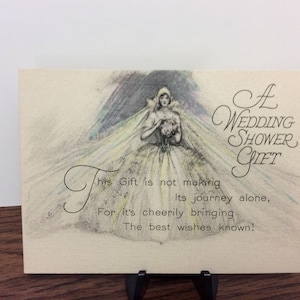 A
Wedding
Shower
Gift
This Gift is not making
Its journey alone,
For it's cheerily bringing
The best wishes known!